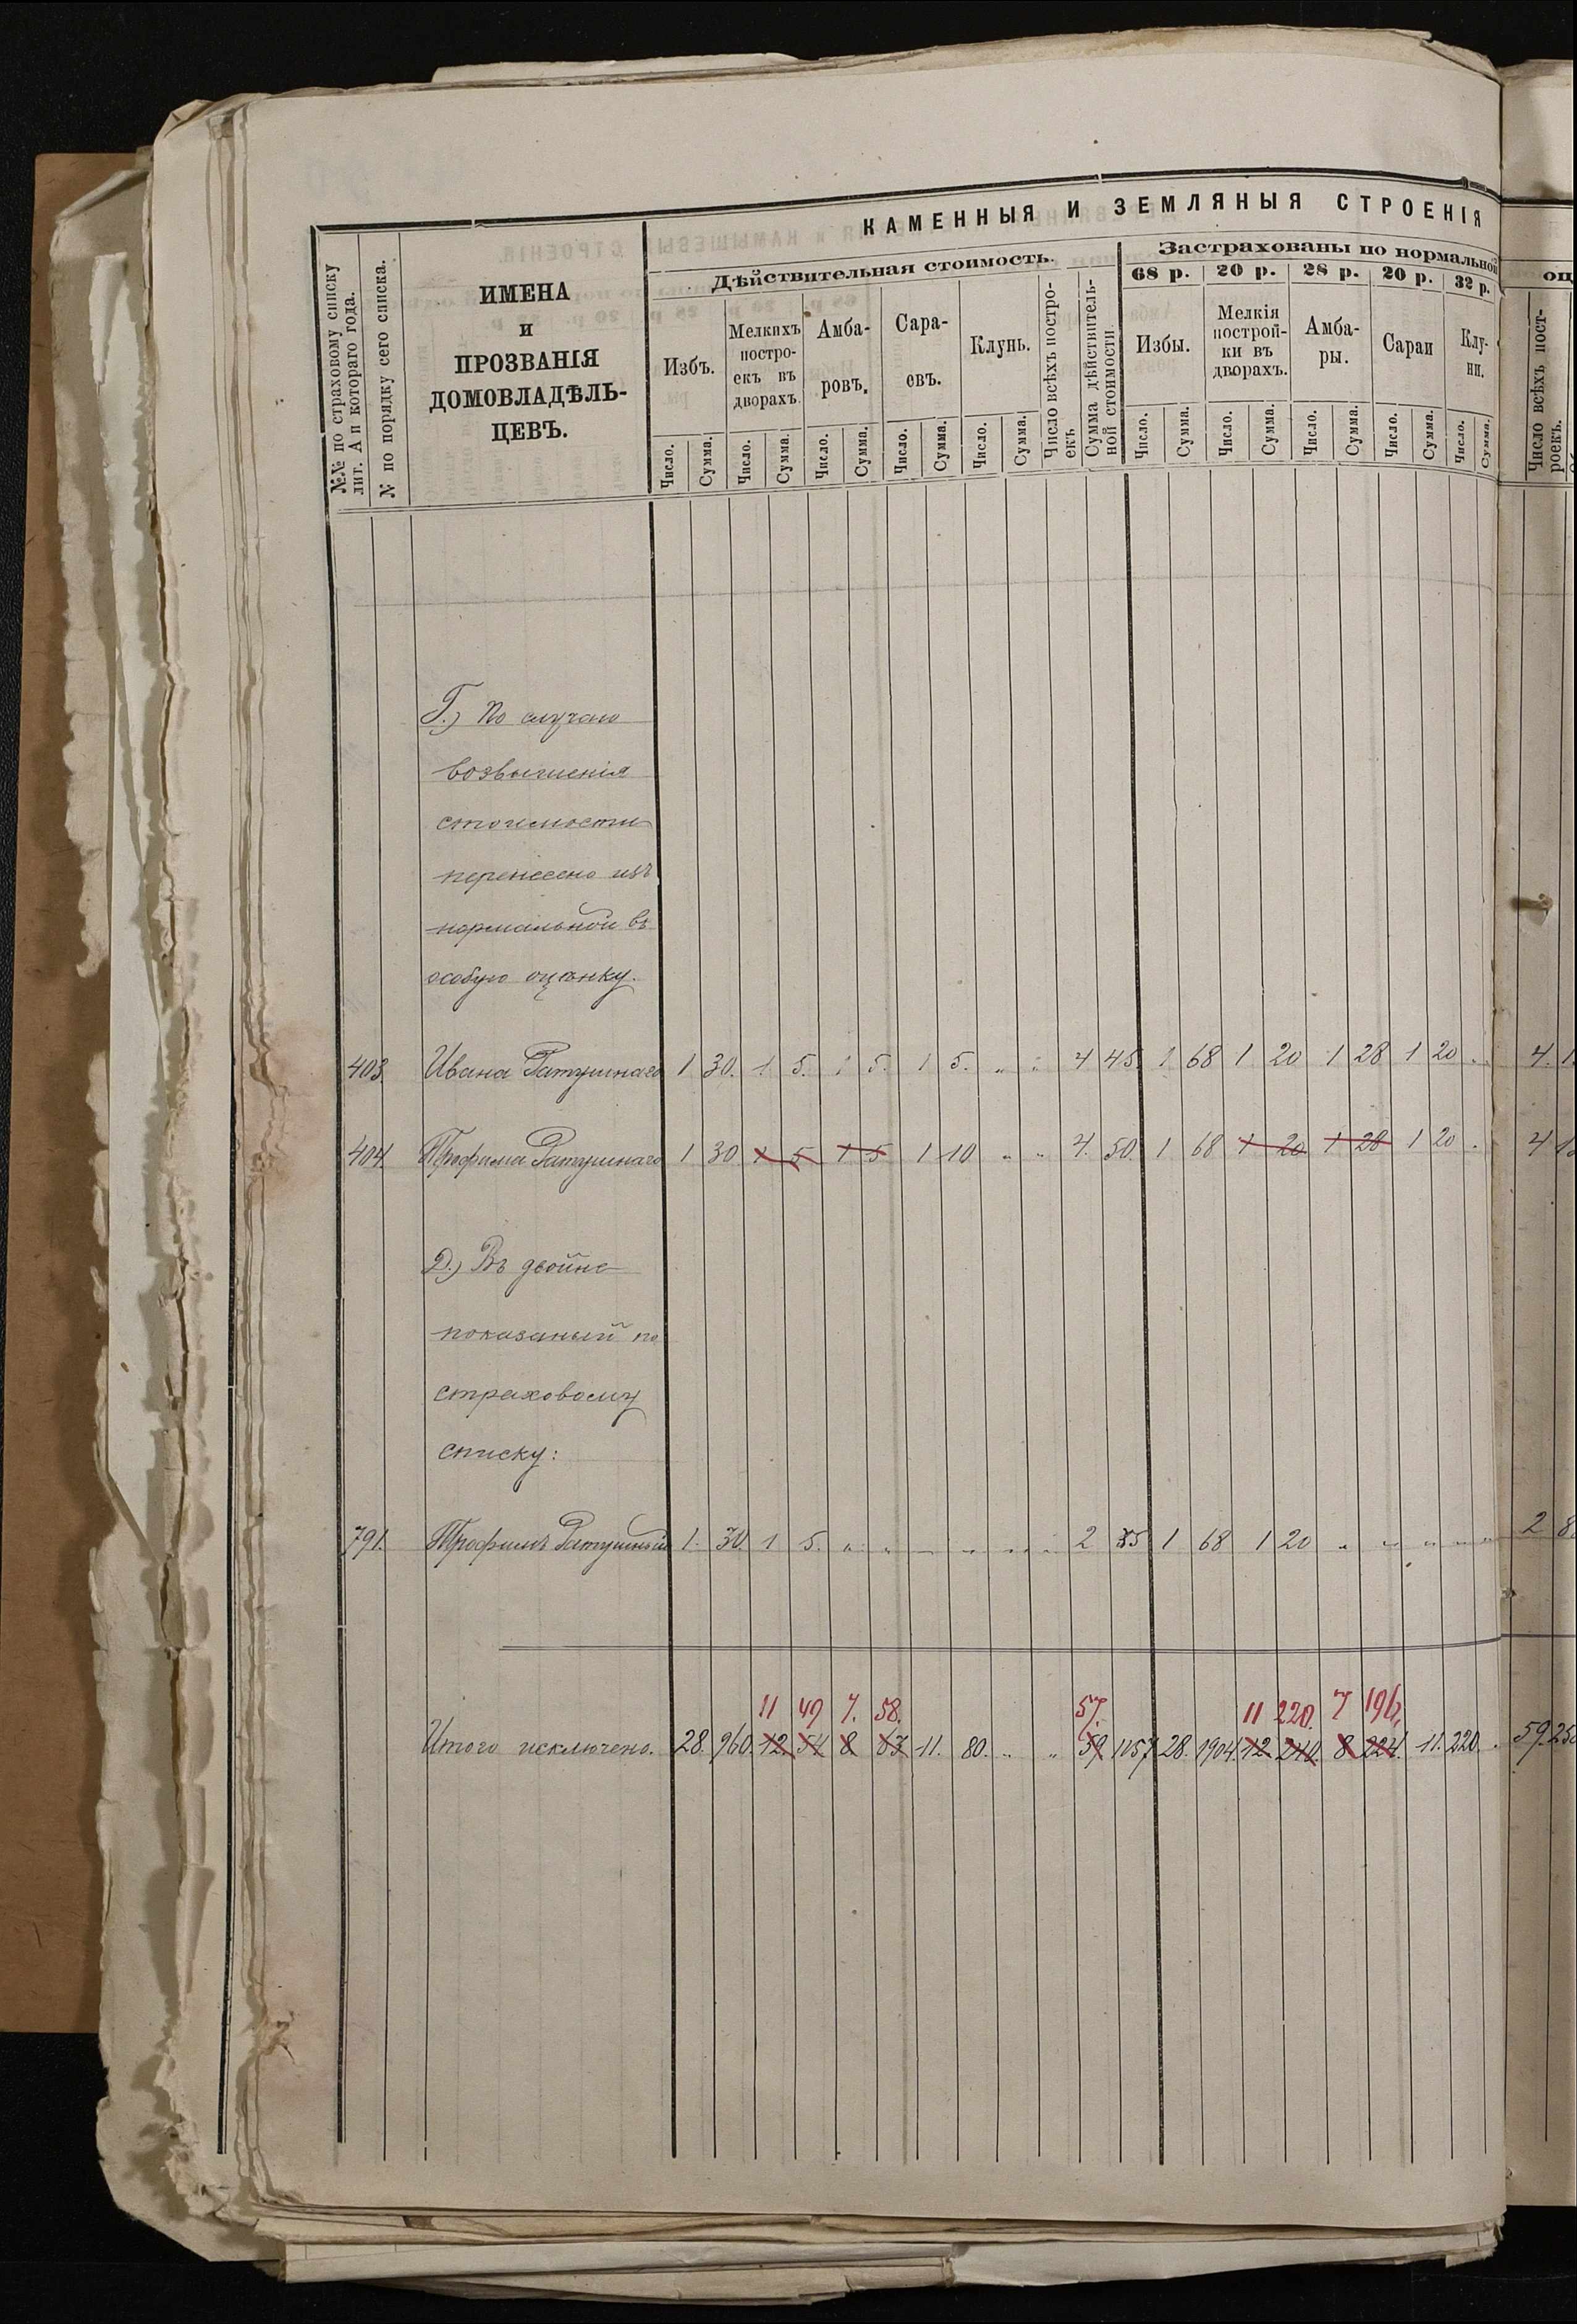 КАМЕННЫЯ И ЗЕМЛЯНЫЯ СТРОЕНІЯ
№№ по страховому списку лит. А и котораго года.
№ по порядку сего списка.
ИМЕНА
и
ПРОЗВАНІЯ
ДОМОВЛАДѢЛЬ-
ЦЕВЪ.
Дѣйствительная стоимость.
Застрахованы по нормальной
оц
68 р. 20 р. 28 р. 20 р. 32 р.
Избъ.
Мелкихъ
постро-
екъ въ
дворахъ.
Амба-
ровъ.
Сара-
евъ.
Клунь.
Число всѣхъ постро-
екъ.
Сумма дѣйствитель-
ной стоимости
Избы.
Мелкія
построй-
ки въ
дворахъ.
Амба-
ры.
Сараи
Клу-
ни.
Число всѣхъ пост-
роекъ.
Число. Сумма. Число. Сумма. Число. Сумма. Число. Сумма. Число. Сумма. Число. Сумма. Число. Сумма. Число. Сумма. Число. Сумма. Число. Сумма.
Г.) По случаю
возвышенія
стоимости
перенесено изъ
нормальной въ
особую оцѣнку.
403. Ивана Ратушнаго 1 30. 1 5. 1 5. 1 5. „ „ 4 45. 1 68 1 20 1 28 1 20 „ 4. 1
404. Трофима Ратушнаго 1 30 1 5 1 5 1 10 „ „ 4. 50. 1 68 1 20 1 28 1 20 „ 4
Д.) Въ двойне
показаный по
страховому
списку:
791. Трофимъ Ратушный 1. 30. 1 5. „ „ „ „ „ „ 2 35 1 68 1 20 „ „ „ „ „ „ 2 8
11 49 7. 58. 57. 11 220. 7 196,
Итого исключено. 28. 960. 12. 54 8 63 11. 80. „ „ 59 1157 28. 1904. 12 240. 8 224. 11. 220. „ 59. 25